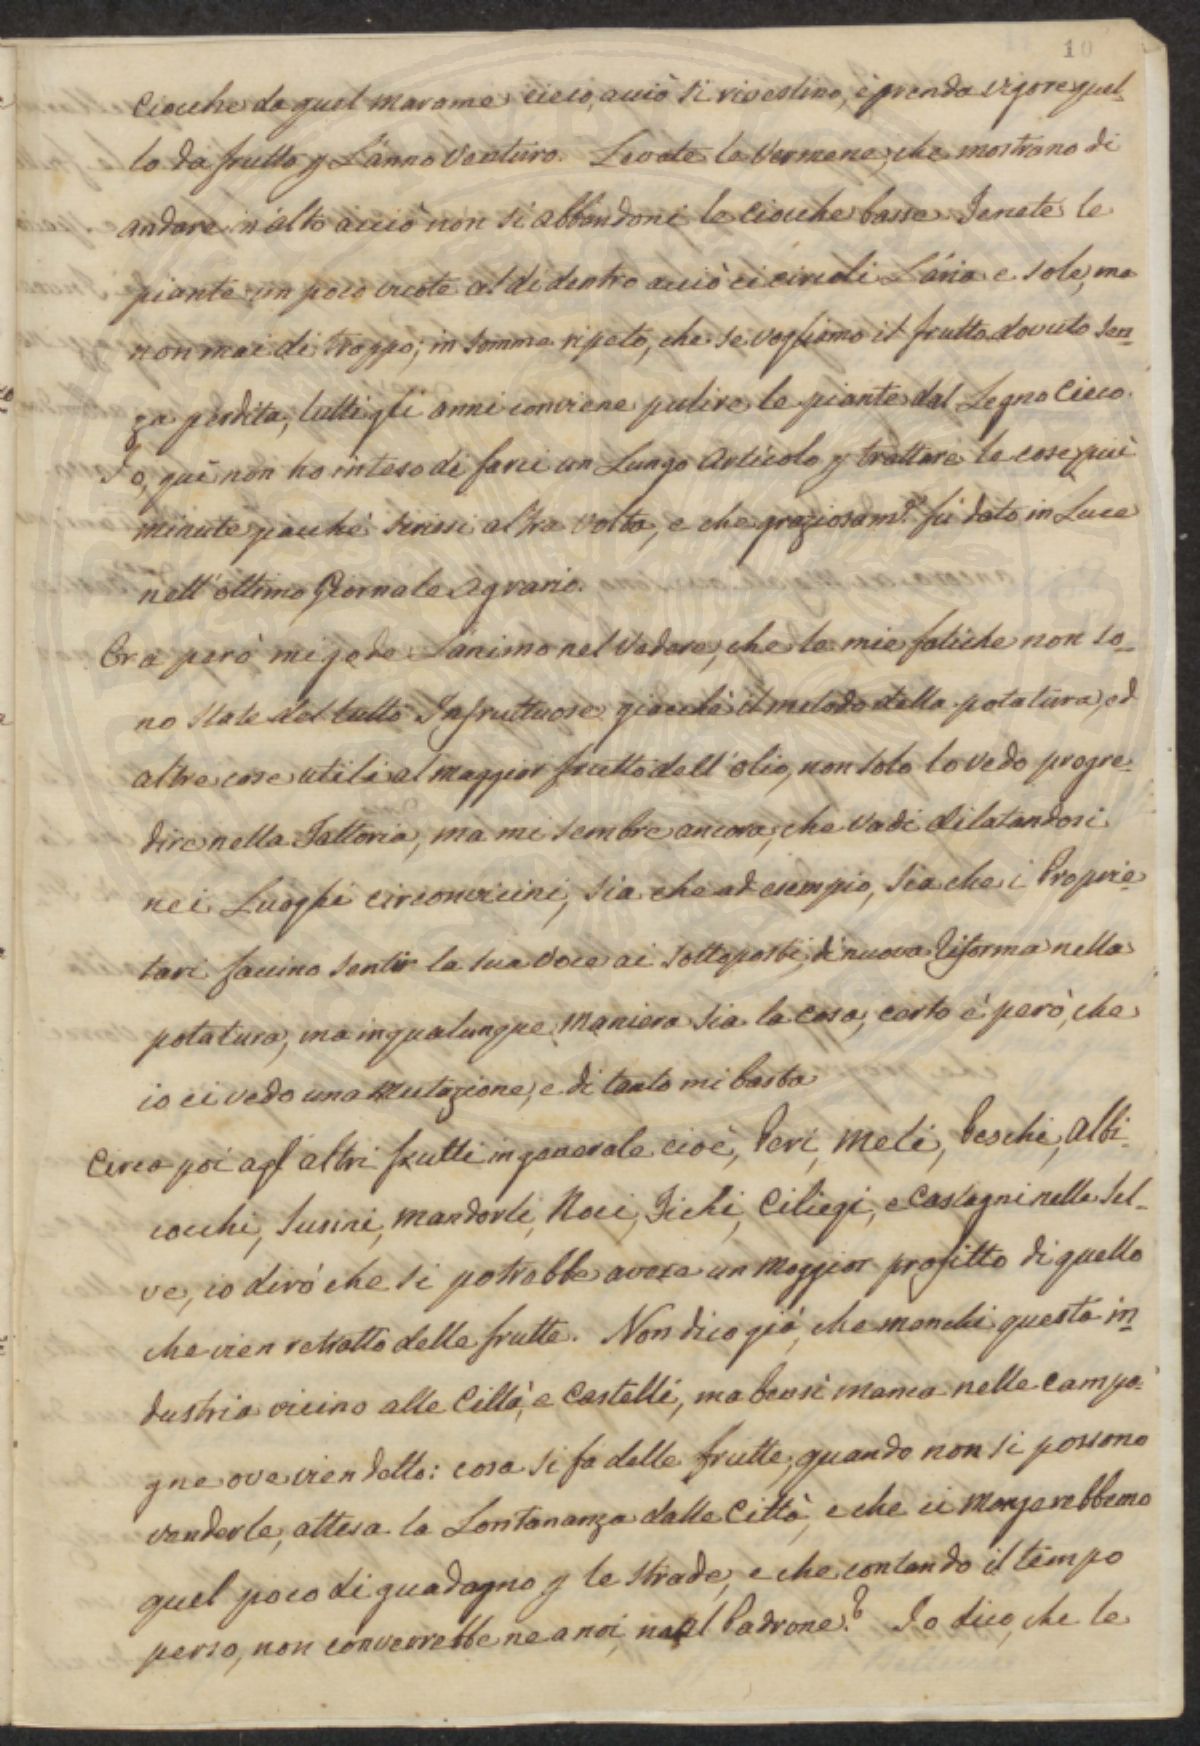 10
Ciocche da quel marame cieco, acciò si rivestino, e prenda vigore quel-
lo da frutto p L'anno Venturo. Levate le Vermene, che mostrano di
andare in alto acciò non si abbandoni le Ciocche basse. Tenete le
piante un poco vuote al di dentro acciò ci circoli L'aria e sole, ma
non mai di troppo; in somma ripeto, che se vogliamo il frutto dovuto sen-
za perdita, tutti gli anni conviene pulire le piante dal Legno Cieco.
Io, quì non ho inteso di farci un Lungo Articolo p trattare le cose più
minute perchè scrissi altra volta, e che graziosam.e fù dato in Luce
nell'ottimo Giornale Agrario.
Ora però mi gode L'animo nel Vedere, che le mie fatiche non so-
no state del tutto Infruttuose giacchè il metodo della potatura, ed
altre cose utili al maggior frutto dell'olio, non solo lo vedo progre-
dire nella Fattoria, ma mi sembra ancora, che vadi dilatandosi
nei Luoghi circonvicini, sia che ad esempio, sia che i Proprie-
tari faccino sentir la sua voce ai sottoposti, di nuova Riforma nella
potatura, ma in qualunque Maniera sia la cosa, certo è però, che
io ci vedo una Mutazione, e di tanto mi basta
Circa poi agl'altri frutti in generale cioè, Peri, Meli, Peschi, Albi-
cocchi, Susini, Mandorli, Noci, Fichi, Ciliegi, e Castagni nelle Sel-
ve, io dirò che si potrebbe avere un Maggior profitto di quello
che vien retratto delle frutte. Non dico già, che manchi questa in-
dustria vicino alle Città, e Castelli, ma bensì manca nelle Campa-
gne ove vien detto: cosa si fa delle frutte, quando non si possono
venderle, attesa la Lontananza dalle Città, e che ci Mangerebbemo
quel poco di guadagno p le strade, e che contando il tempo
perso, non converrebbe ne a noi, ne al Padrone? Io dico, che le